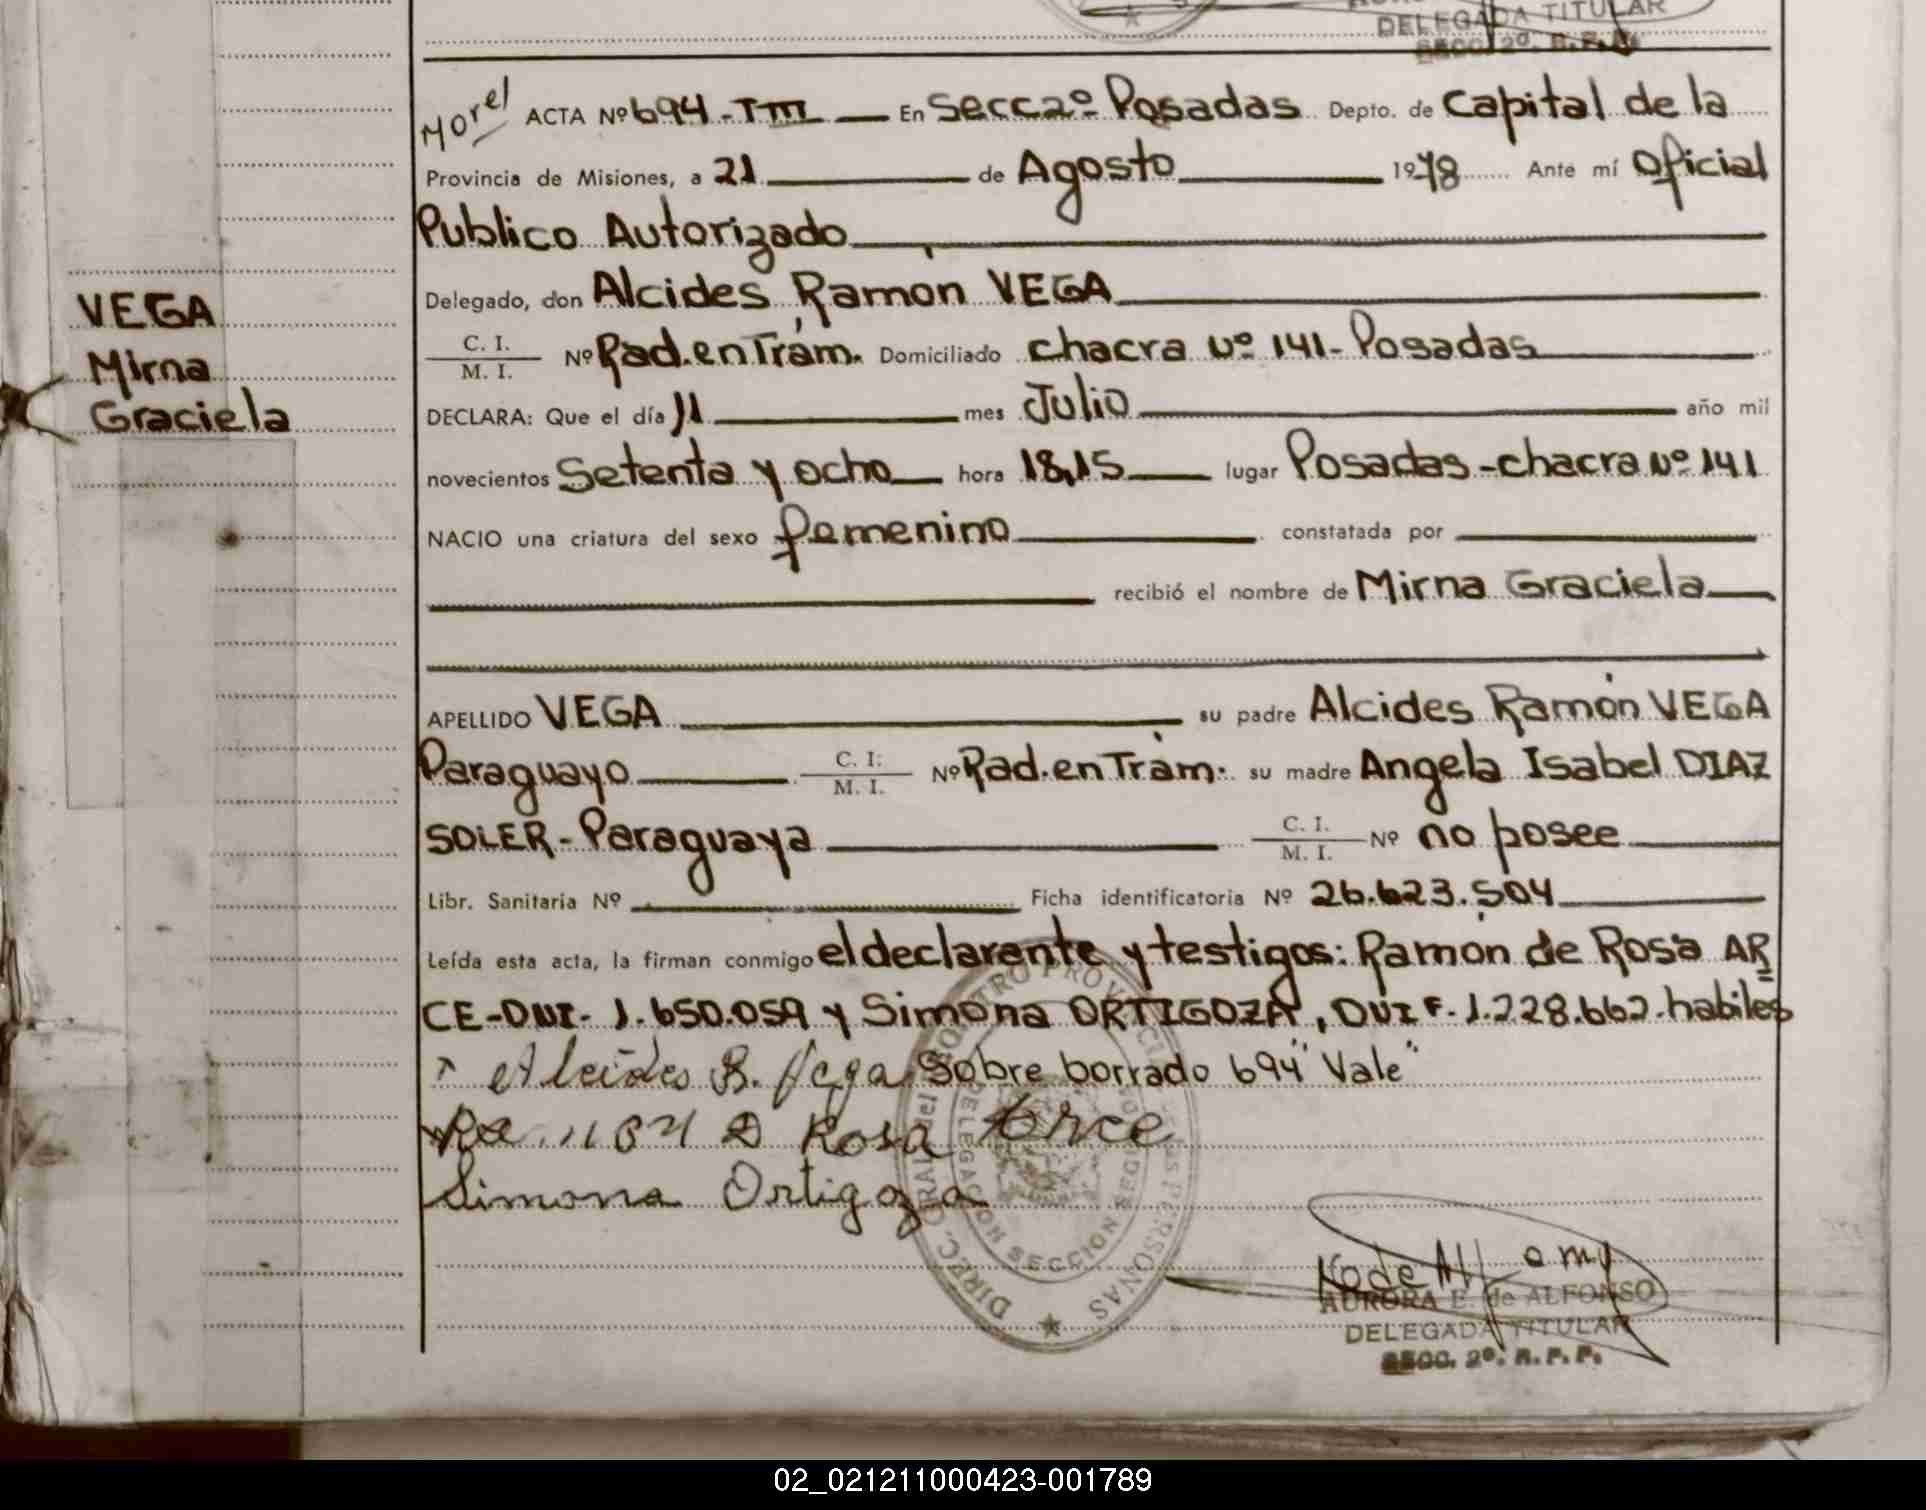 DELEGADA TITULAR
SECC. 2º. R. P. P.
Morel ACTA Nº 694-TIII En Secc 2º Posadas Depto. de Capital de la
Provincia de Misiones, a 21 de Agosto 1978 Ante mí Oficial
Publico Autorizado
Delegado, don Alcides Ramón VEGA
C. I.
M. I. Nº Rad.en Trám. Domiciliado chacra Nº 141-Posadas
DECLARA: Que el día 11 mes Julio año mil
novecientos Setenta y ocho hora 18,15 lugar Posadas-chacra Nº 141
NACIO una criatura del sexo femenino constatada por
recibió el nombre de Mirna Graciela
APELLIDO VEGA su padre Alcides Ramón VEGA
Paraguayo C. I:
M. I. Nº Rad.en Trám. su madre Angela Isabel DIAZ
SOLER-Paraguaya C. I.
M. I. Nº no posee
Libr. Sanitaria Nº Ficha identificatoria Nº 26.623.504
Leída esta acta, la firman conmigo el declarante y testigos: Ramón de Rosa AR
CE-DNI- 1.650.059 y Simona ORTIGOZA, DNI F. 1.228.662.habiles
Alcides R. Vega Sobre borrado 694 "Vale"
Ramon D Rosa Arce
Simona Ortigoza
VEGA
Mirna
Graciela
DIREC. GRAL. del REGISTRO PROVINCIAL DE LAS PERSONAS
DELEGACION SECCION SEGUNDA
AURORA E. de ALFONSO
DELEGADA TITULAR
SECC. 2º. R. P. P.
02_021211000423-001789